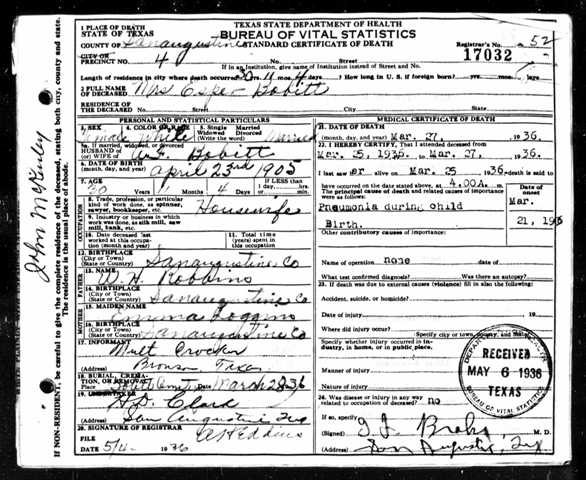 TEXAS STATE DEPARTMENT OF HEALTH
BUREAU OF VITAL STATISTICS
STANDARD CERTIFICATE OF DEATH
1 PLACE OF DEATH
STATE OF TEXAS
COUNTY OF Sanaugustine
CITY OR
PRECINCT NO. 4
No. Street
Registrar's No. 52
17032
If in an Institution, give name of Institution instead of Street and No.
Length of residence in city where death occurred yrs. 11 mos. 4 days. How long in U. S. if foreign born? yrs. mos. days
2 FULL NAME
OF DECEASED Mrs Esper Bobitt
RESIDENCE OF
THE DECEASED No. Street City State
PERSONAL AND STATISTICAL PARTICULARS
3. SEX Female
4. COLOR OR RACE White
5. Single Married
Widowed Divorced
(Write the word) Married
5a. If married, widowed or divorced
HUSBAND OF
(or) WIFE OF Bobitt
6. DATE OF BIRTH
(month, day, and year) April 23rd 1905
7. AGE
Years Months Days
30 11 4
If LESS than
1 day, hrs.
or min.
8. Trade, profession, or particular
kind of work done, as spinner,
sawyer, bookkeeper, etc. Housewife
9. Industry or business in which
work was done, as silk mill, saw
mill, bank, etc.
10. Date deceased last
worked at this occupation
(month and year)
11. Total time (years)
spent in this
occupation
12. BIRTHPLACE
(City or Town)
(State or Country) Sanaugustine Co
FATHER
13. NAME W. H. Robbins
14. BIRTHPLACE
(City or Town)
(State or Country) Sanaugustine Co
MOTHER
15. MAIDEN NAME Emma Loggins
16. BIRTHPLACE
(City or Town)
(State or Country) Sanaugustine Co
17. INFORMANT
Crocker
(Address) Bronson Texas
18. BURIAL, CREMATION, OR REMOVAL
Place Date March 28 36
19. UNDERTAKER
H. D. Clark
(Address) San Augustine Tex
20. SIGNATURE OF REGISTRAR
FILE
DATE 5/4 - 1936
MEDICAL CERTIFICATE OF DEATH
21. DATE OF DEATH
(month, day, and year) Mar. 27, 1936.
22. I HEREBY CERTIFY, That I attended deceased from
Mar. 25, 1936. to Mar. 27, 1936.
I last saw her alive on Mar. 25 1936. death is said to
have occurred on the date stated above, at 4.00A. m.
The principal cause of death and related causes of importance
were as follows:
Date of
onset
Pneumonia during child
Birth.
Mar.
21, 1936
Other contributory causes of importance:
Name of operation none date of
What test confirmed diagnosis? Was there an autopsy?
23. If death was due to external causes (violence) fill in also the following:
Accident, suicide, or homicide?
Date of injury 19
Where did injury occur?
Specify city or town, county, and State
Specify whether injury occurred in industry, in home, or in public place.
Manner of injury
Nature of injury
24. Was disease or injury in any way
related to occupation of deceased? no
If so, specify
(Signed) M. D.
(Address) San Augustine, Tex.
RECEIVED
MAY 6 1936
TEXAS
BUREAU OF VITAL STATISTICS
John McGinley
IF NON-RESIDENT, be careful to give the complete residence of the deceased, stating both city, county and state.
The residence is the usual place of abode.